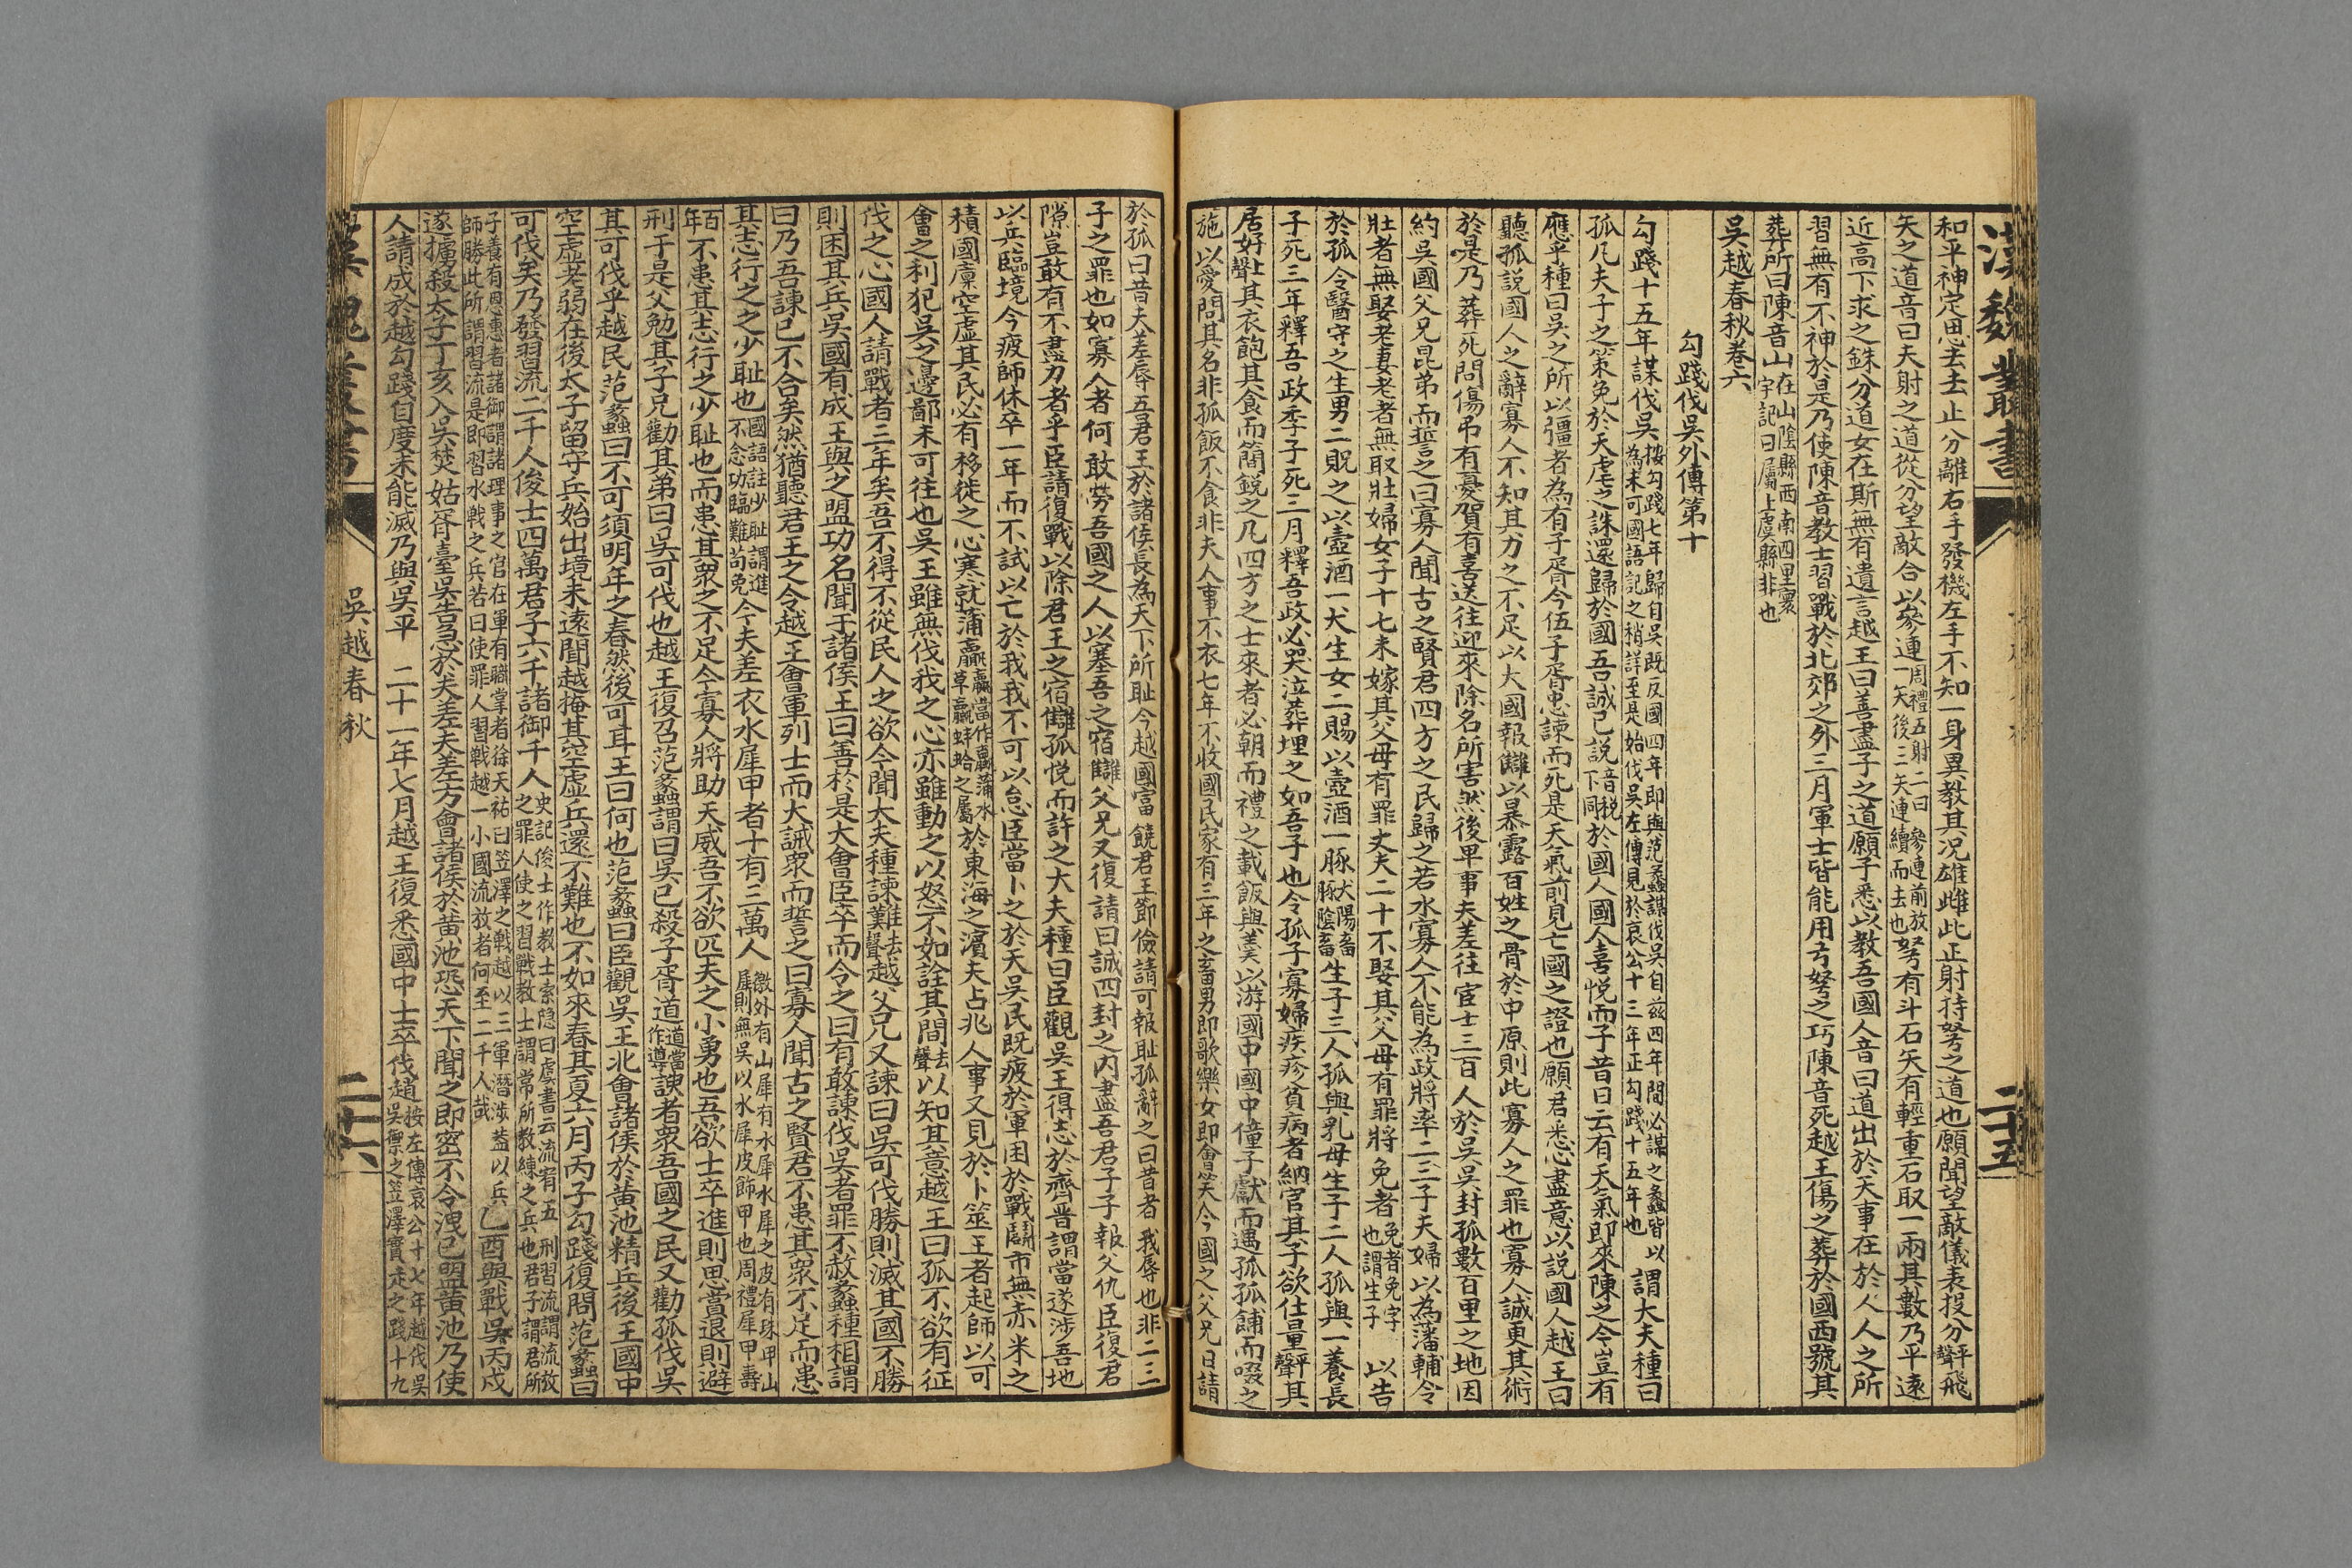 漢魏叢書
二十五
和平神定思去去止分離右手發機左手不知一身異教其況雄雌此正射持弩之道也願聞望敵儀表投分平聲飛
矢之道音曰夫射之道從分望敵合以參連周禮五射二曰參連前放一矢後三矢連續而去也弩有斗石矢有輕重石取一兩其數乃平遠
近高下求之銖分道女在斯無有遺言越王曰善盡子之道願子悉以教吾國人音曰道出於天事在於人人之所
習無有不神於是乃使陳音教士習戰於北郊之外三月軍士皆能用弓弩之巧陳音死越王傷之葬於國西號其
葬所曰陳音山在山陰縣西南四里寰宇記曰屬上虞縣非也
吳越春秋卷六
勾踐伐吳外傳第十
勾踐十五年謀伐吳按勾踐七年歸自吳既反國四年即與范蠡謀伐吳自兹四年間必謀之蠡皆以為未可國語記之稍詳至是始伐吳左傳見於哀公十三年正勾踐十五年也謂大夫種曰
孤凡夫子之策免於天虐之誅還歸於國吾誠已說音稅下同於國人國人喜悅而子昔日云有天氣即來陳之今豈有
應乎種曰吳之所以彊者為有子胥今伍子胥忠諫而死是天氣前見亡國之證也願君悉心盡意以說國人越王曰
聽孤說國人之辭寡人不知其力之不足以大國報讎以暴露百姓之骨於中原則此寡人之罪也寡人誠更其術
於是乃葬死問傷吊有憂賀有喜送往迎來除名所害然後卑事夫差往宦士三百人於吳吳封孤數百里之地因
約吳國父兄昆弟而誓之曰寡人聞古之賢君四方之民歸之若水寡人不能為政將率二三子夫婦以為藩輔令
壯者無娶老妻老者無取壯婦女子十七未嫁其父母有罪丈夫二十不娶其父母有罪將免者免者免字也謂生子以告
於孤令醫守之生男二貺之以壺酒一犬生女二賜以壺酒一豚犬陽畜豚陰畜生子三人孤與乳母生子二人孤與一養長
子死三年釋吾政季子死三月釋吾政必哭泣葬埋之如吾子也令孤子寡婦疾疹貧病者納官其子欲仕量平聲其
居好上聲其衣飽其食而簡銳之凡四方之士來者必朝而禮之載飯與羹以游國中國中僮子獻而遇孤孤餔而啜之
施以愛問其名非孤飯不食非夫人事不衣七年不收國民家有三年之畜男即歌樂女即會笑今國之父兄日請
於孤曰昔夫差辱吾君王於諸侯長為天下所恥今越國富饒君王節儉請可報恥孤辭之曰昔者我辱也非二三
子之罪也如寡人者何敢勞吾國之人以塞吾之宿讎父兄又復請曰誠四封之內盡吾君子子報父仇臣復君
隙豈敢有不盡力者乎臣請復戰以除君王之宿讎孤悅而許之大夫種曰臣觀吳王得志於齊晉謂當遂涉吾地
以兵臨境今疲師休卒一年而不試以亡於我我不可以怠臣當卜之於天吳民既疲於軍困於戰鬭市無赤米之
積國廩空虛其民必有移徙之心寒就蒲蠃蠃當作蠃蒲水草蠃蚌蛤之屬於東海之濱夫占兆人事又見於卜筮王者起師以可
會之利犯吳之邊鄙未可往也吳王雖無伐我之心亦雖動之以怒不如詮其間去聲以知其意越王曰孤不欲有征
伐之心國人請戰者三年矣吾不得不從民人之欲今聞大夫種諫難去聲越父兄又諫曰吳可伐勝則滅其國不勝
則困其兵吳國有成王與之盟功名聞于諸侯王曰善於是大會臣卒而令之曰有敢諫伐吳者罪不赦蠡種相謂
曰乃吾諫已不合矣然猶聽君王之令越王會軍列士而大誡眾而誓之曰寡人聞古之賢君不患其眾不足而患
其志行之之少恥也國語註少恥謂進不念功臨難苟免今夫差衣水犀甲者十有三萬人徼外有山犀有水犀水犀之皮有珠甲山犀則無吳以水犀皮飾甲也周禮犀甲壽百年
不患其志行之少恥也而患其眾之不足今寡人將助天威吾不欲匹夫之小勇也吾欲士卒進則思賞退則避
刑于是父勉其子兄勸其弟曰吳可伐也越王復召范蠡謂曰吳已殺子胥道道當作導諛者眾吾國之民又勸孤伐吳
其可伐乎越民范蠡曰不可須明年之春然後可耳王曰何也范蠡曰臣觀吳王北會諸侯於黃池精兵後王國中
空虛老弱在後太子留守兵始出境未遠聞越掩其空虛兵還不難也不如來春其夏六月丙子勾踐復問范蠡曰
可伐矣乃發習流二千人俊士四萬君子六千諸御千人史記俊士作教士索隱曰虞書云流宥五刑習流謂流放之罪人使之習戰教士謂常所教練之兵也君子謂君所
子養有恩惠者諸御謂諸理事之官在軍有職掌者徐天祜曰笠澤之戰越以三軍潛涉蓋以兵師勝此所謂習流是即習水戰之兵若曰使罪人習戰越一小國流放者何至二千人哉己酉與戰吳丙戌
遂擄殺太子丁亥入吳焚姑胥臺吳告急於夫差夫差方會諸侯於黃池恐天下聞之即密不令洩已盟黃池乃使
人請成於越勾踐自度未能滅乃與吳平　二十一年七月越王復悉國中士卒伐趙按左傳哀公十七年越伐吳吳禦之笠澤實走之踐十九
吳越春秋
二十六